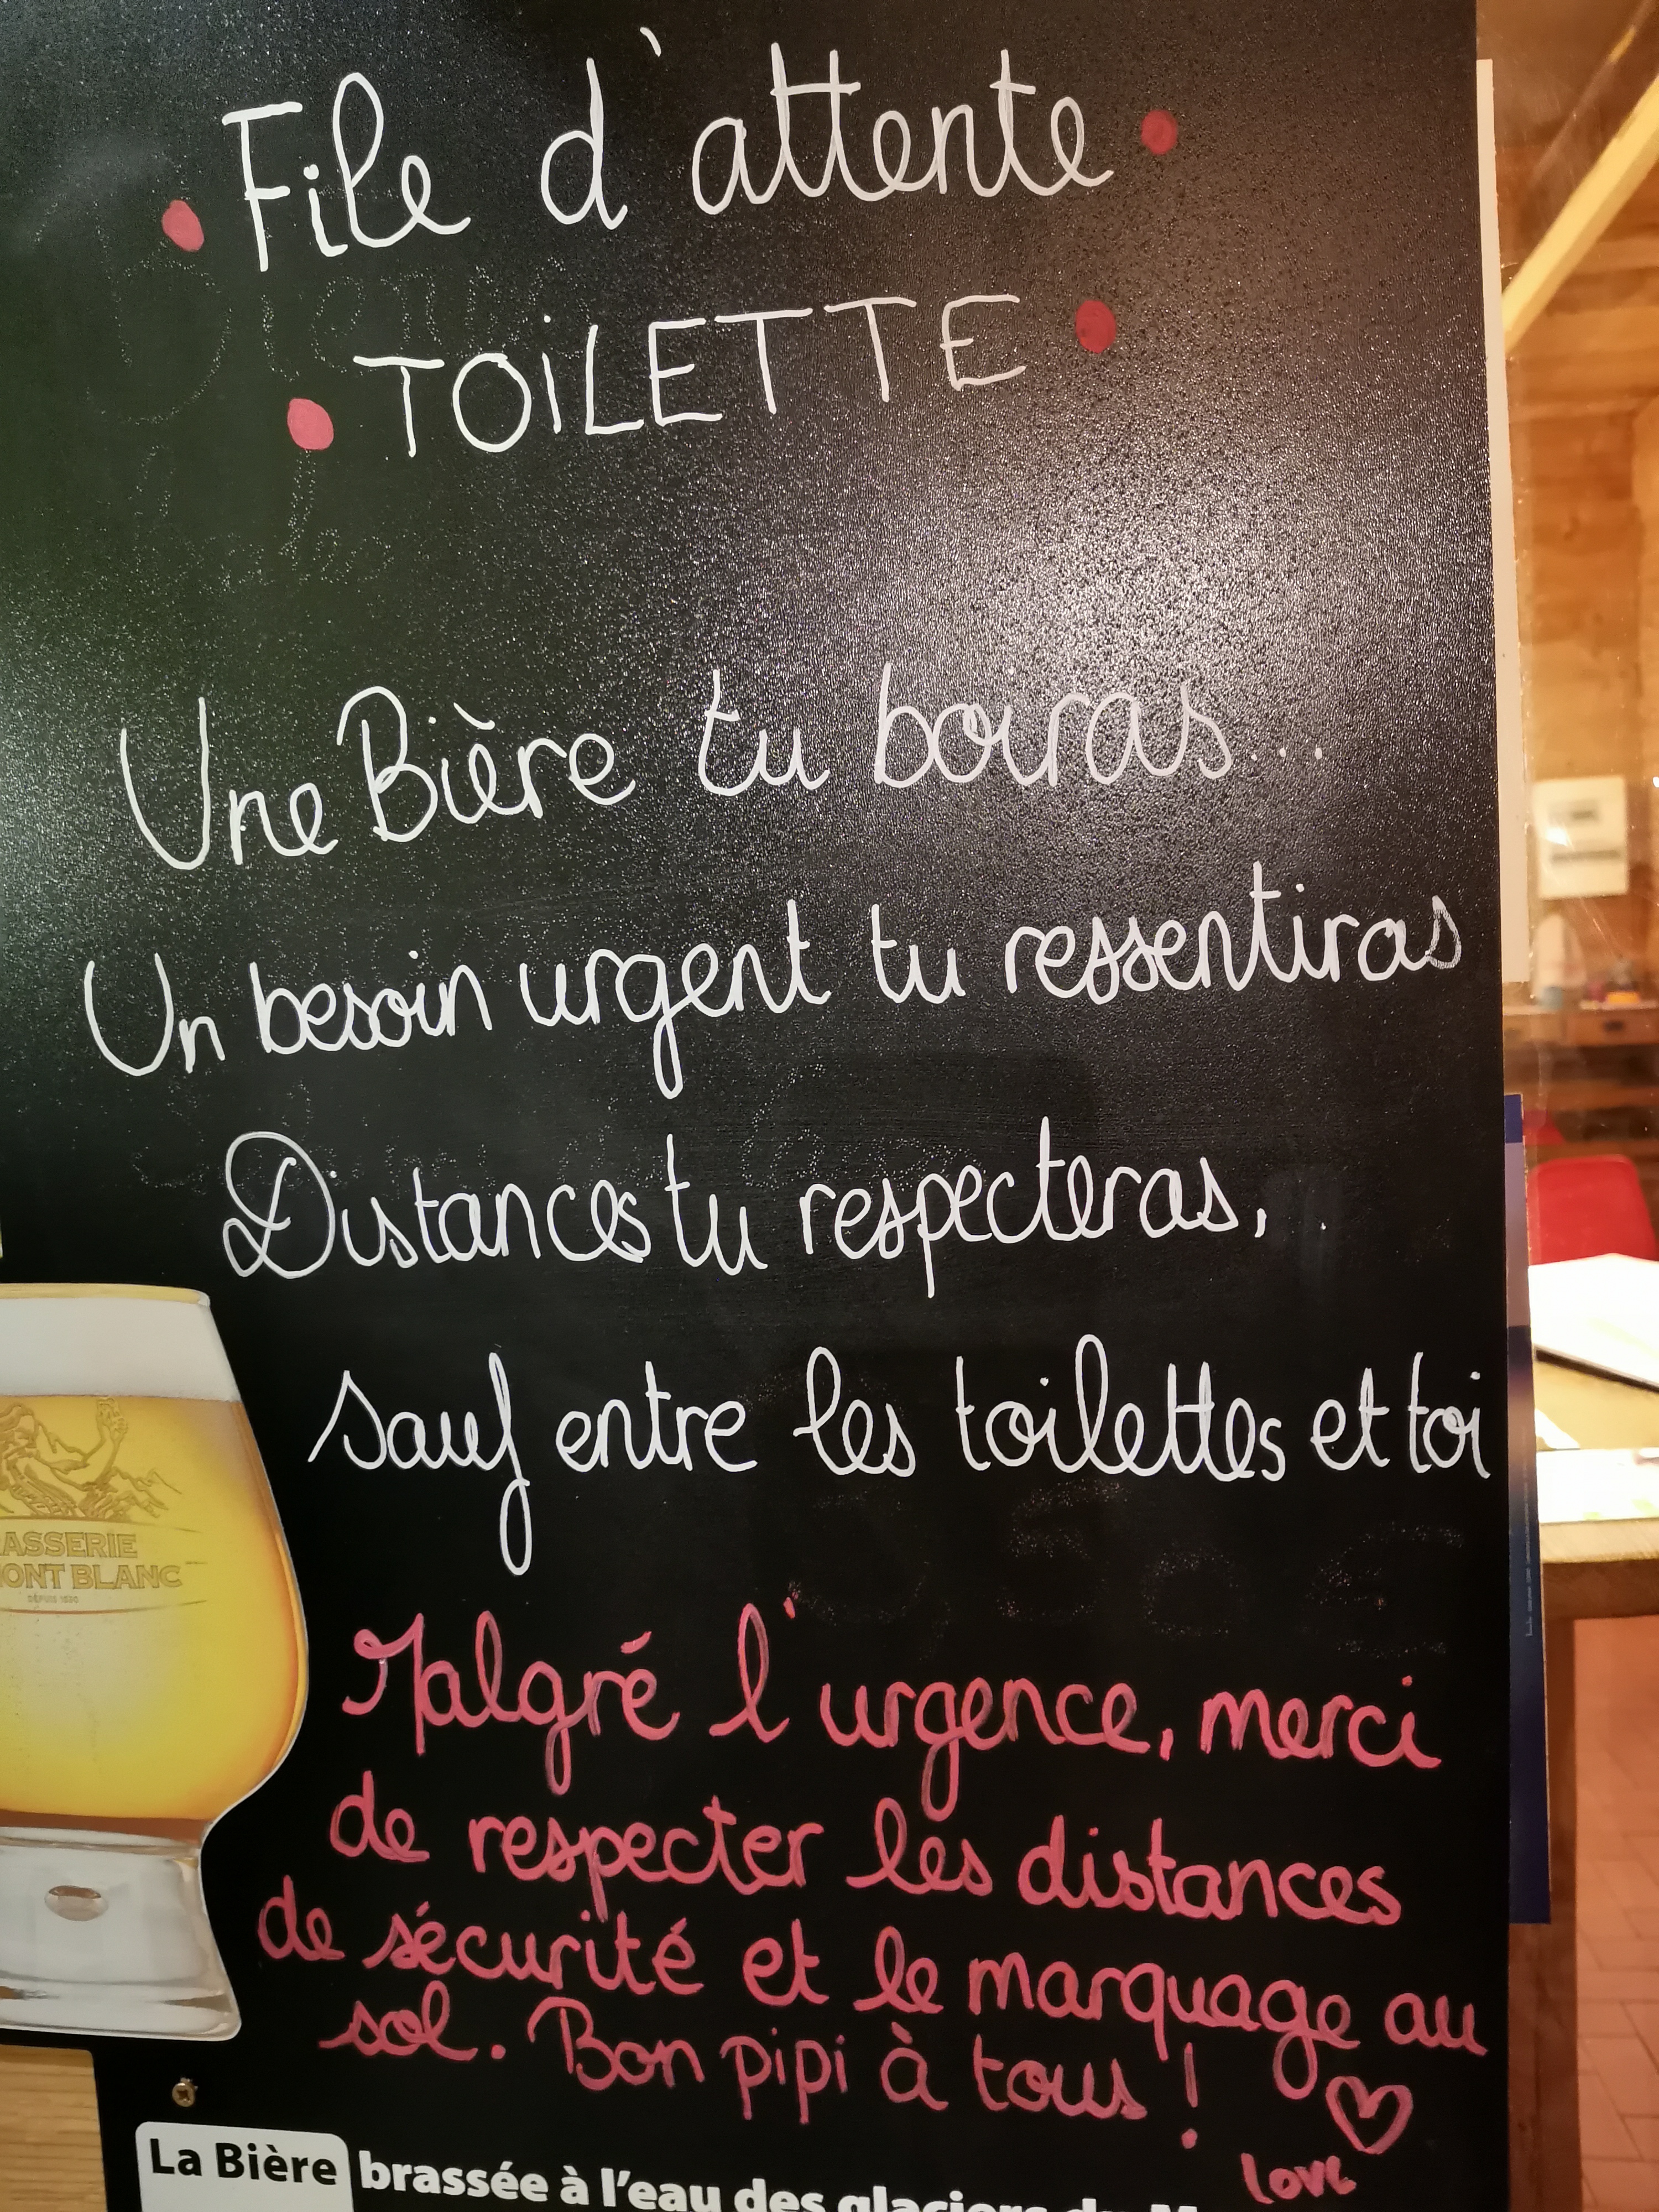 File d'attente
TOiLETTE
Une Bière tu boiras...
Un besoin urgent tu ressentiras
Distances tu respecteras,
sauf entre les toilettes et toi
Malgré l'urgence, merci
de respecter les distances
de sécurité et le marquage au
sol. Bon pipi à tous !
love
ASSERIE
ONT BLANC
DEPUIS
La Bière brassée à l'eau des glaciers du M